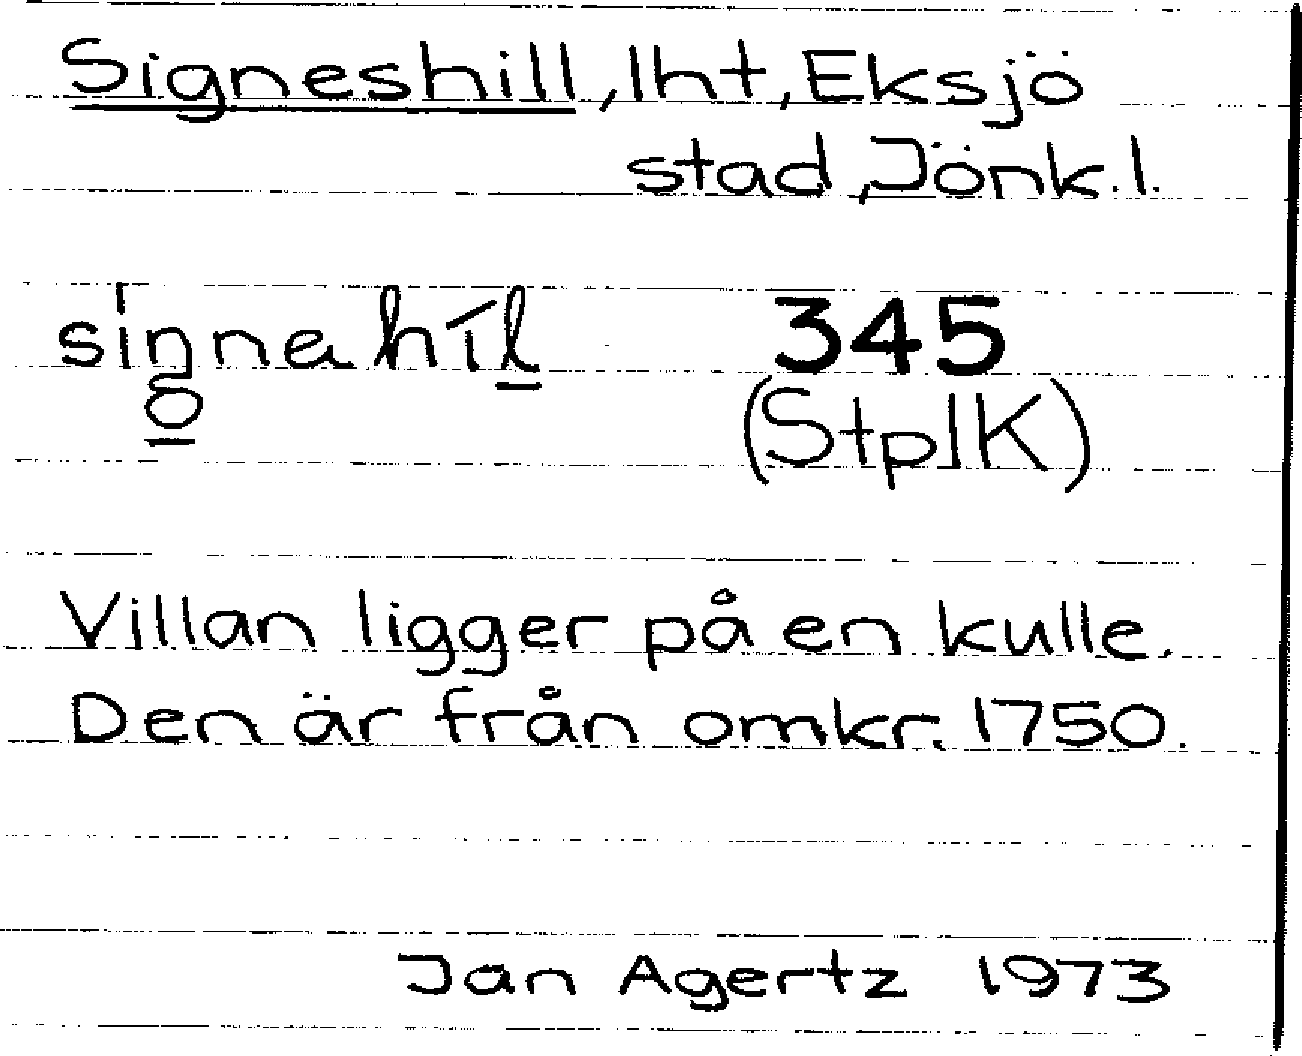 Signeshill, lht, Eksjö
stad, Jönk. l.
345
(StplK)
Villan ligger på en kulle.
Den är från omkr. 1750.
Jan Agertz 1973